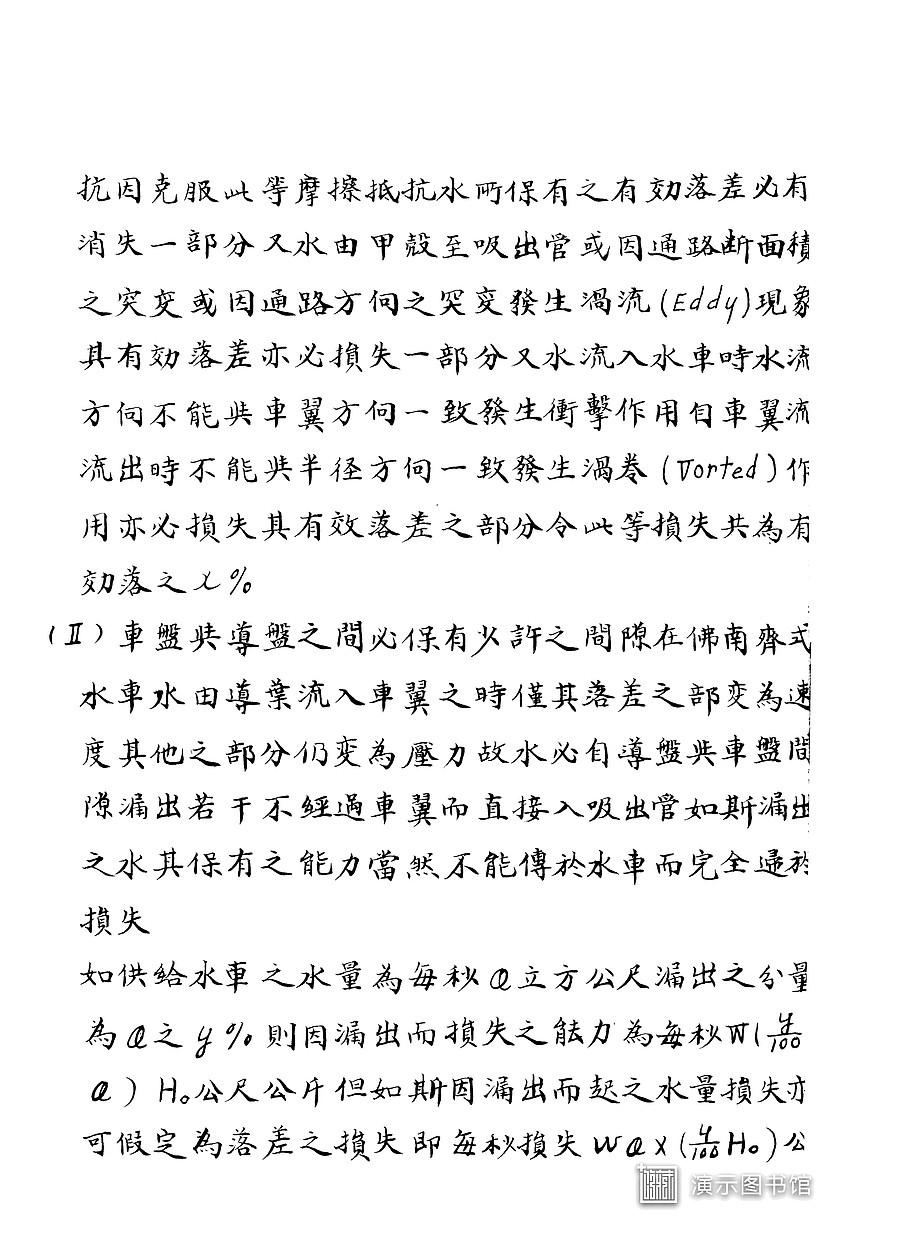 抗因克服此等摩擦抵抗水所保有之有効落差必有
消失一部分又水由甲殼至吸出管或因通路断面積
之突変或因通路方向之突変發生渦流(Eddy)現象
具有効落差亦必損失一部分又水流入水車時水流
方向不能与車翼方向一致發生衝擊作用自車翼流
流出時不能与半径方向一致發生渦卷(Vorted)作
用亦必損失具有效落差之部分令此等損失共為有
効落之x%
(II)車盤与導盤之間必保有少許之間隙在佛南齊式
水車水由導葉流入車翼之時僅其落差之部変為速
度其他之部分仍変為壓力故水必自導盤与車盤間
隙漏出若干不經過車翼而直接入吸出管如斯漏出
之水其保有之能力當然不能傳於水車而完全歸於
損失
如供給水車之水量為每秒Q立方公尺漏出之分量
為Q之y%則因漏出而損失之能力為每秒W(y/100
Q)H₀公尺公斤但如斯因漏出而起之水量損失亦
可假定為落差之損失即每秒損失WQ×(y/100H₀)公
演示图书馆